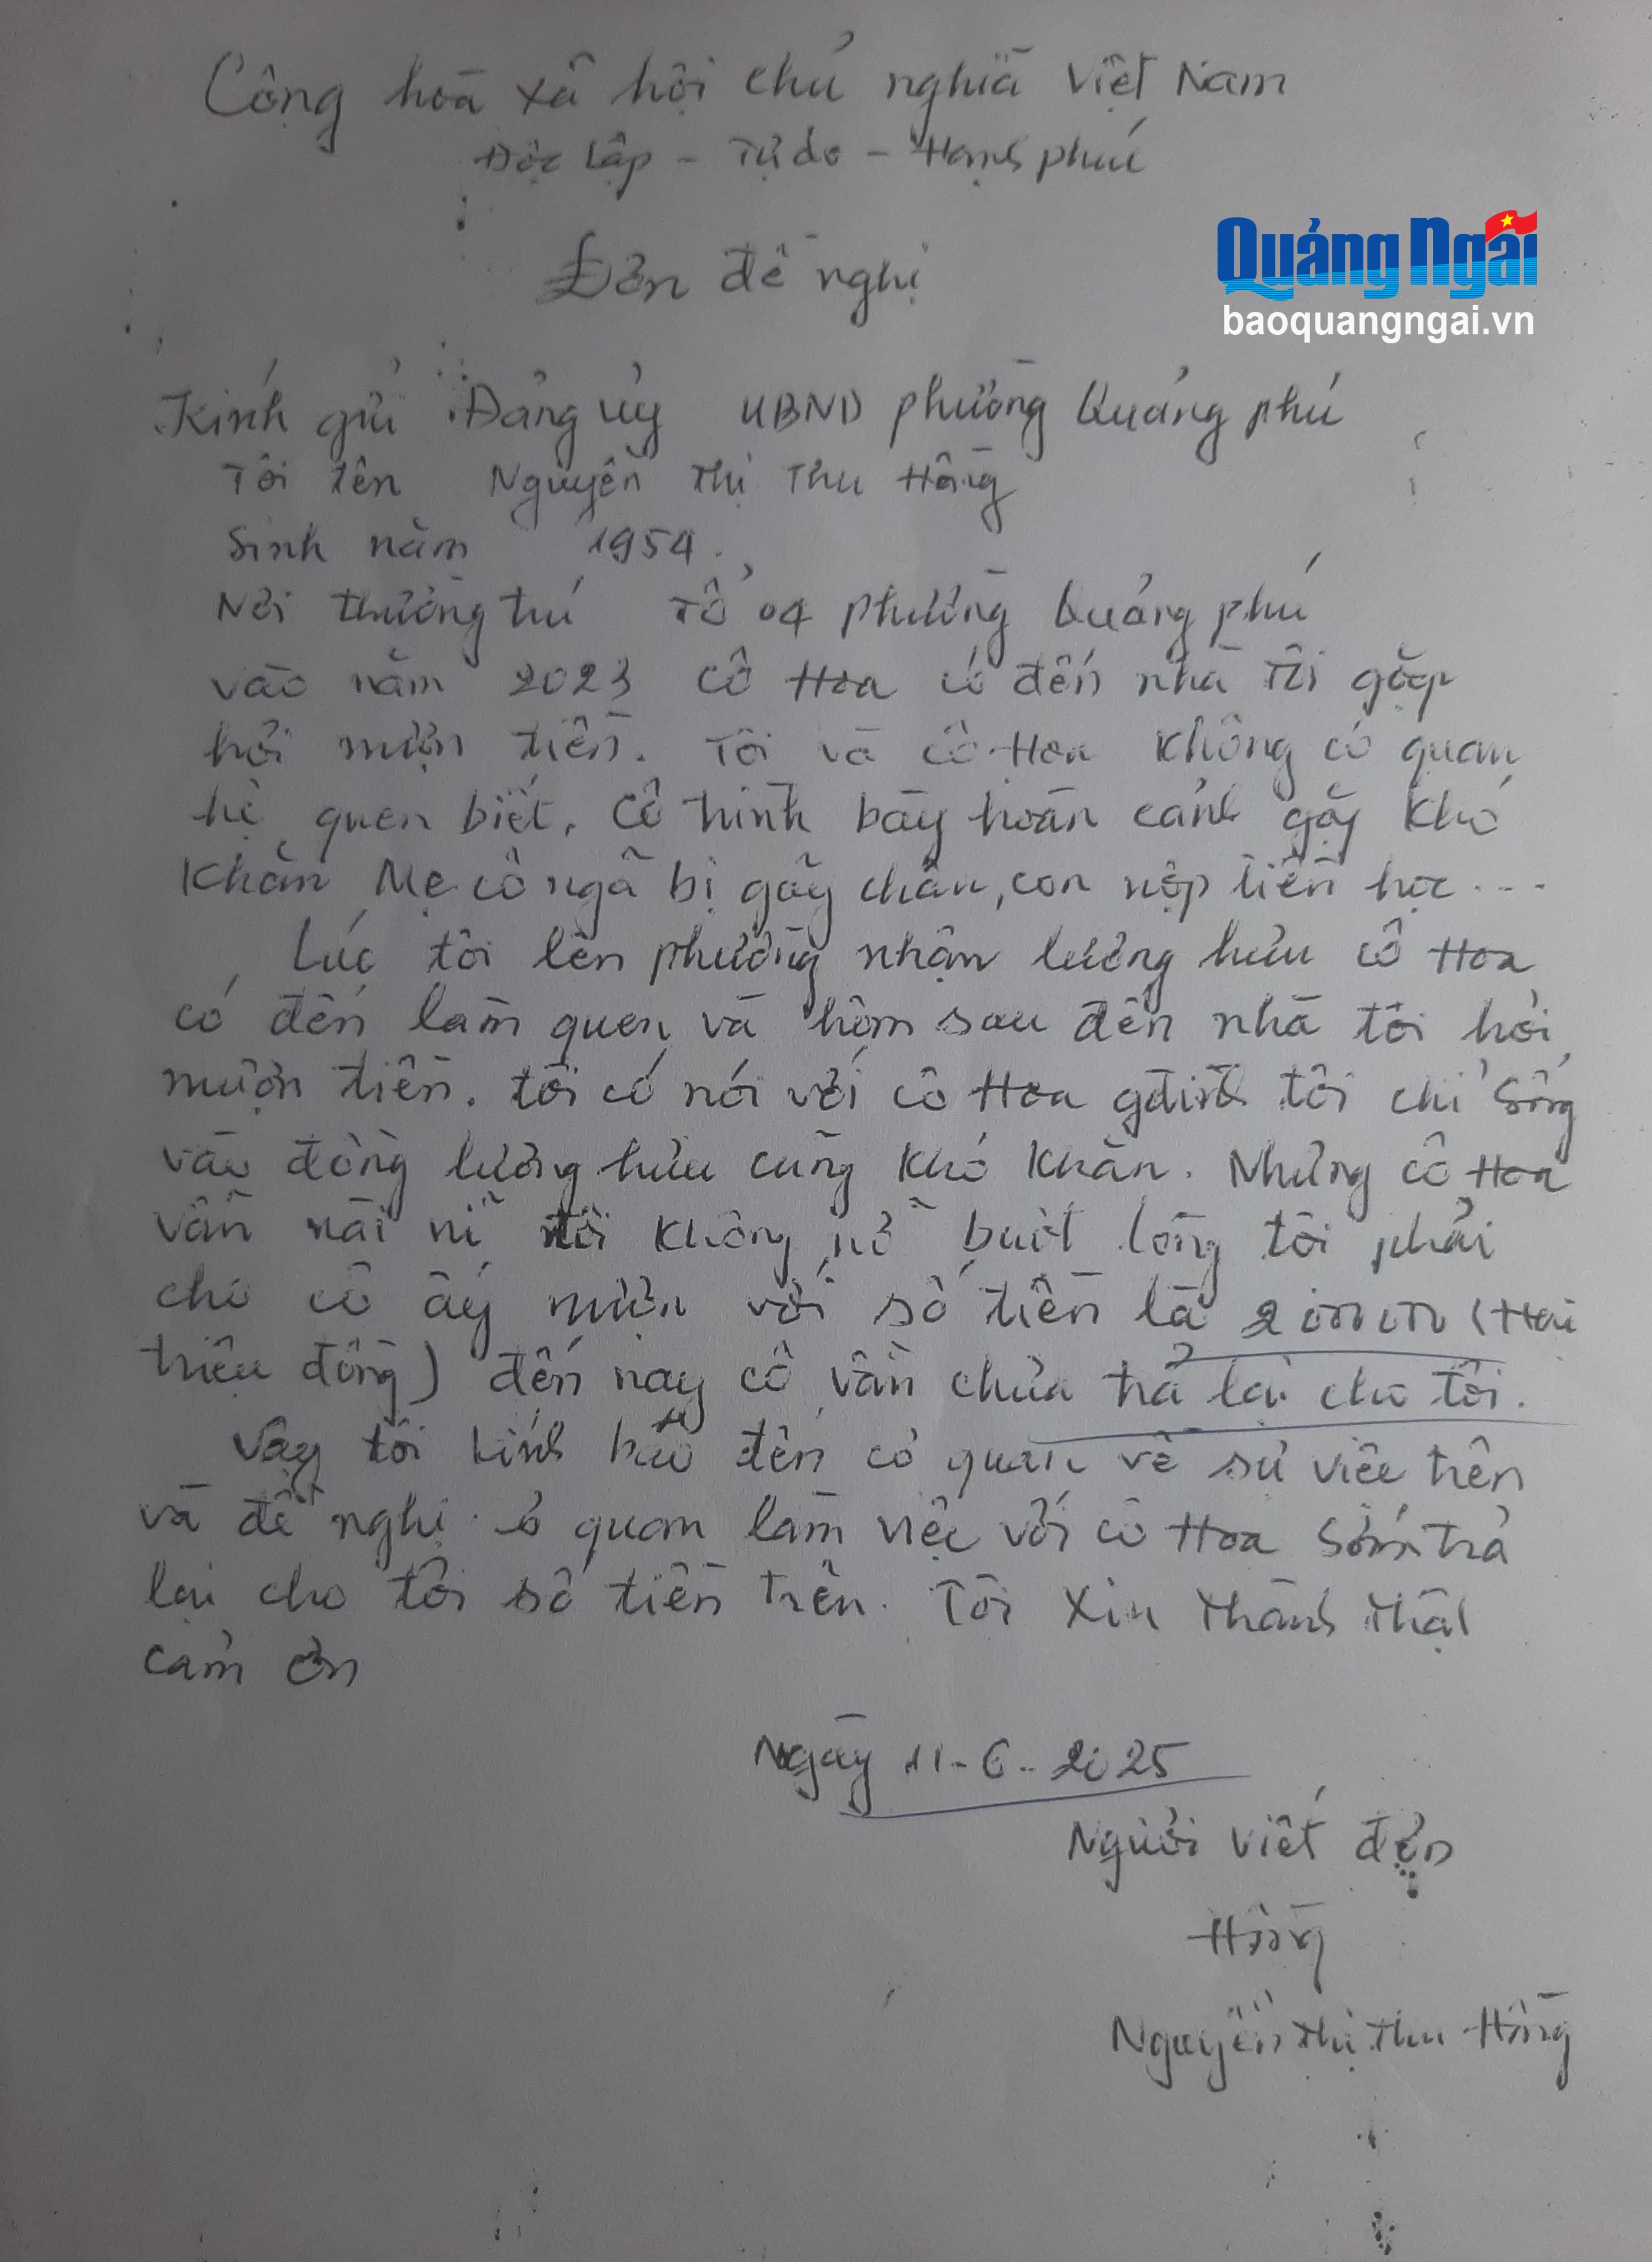 Cộng hoà xã hội chủ nghĩa Việt Nam
Độc lập - Tự do - Hạnh phúc
Quảng Ngãi
baoquangngai.vn
Đơn đề nghị
Kính gửi : Đảng ủy UBND phường Quảng phú
Tôi tên Nguyễn Thị Thu Hồng
Sinh năm 1954.
Nơi thường trú Tổ 04 phường Quảng phú
vào năm 2023 cô Hoa có đến nhà tôi gặp
hỏi mượn tiền. Tôi và cô Hoa không có quan
hệ quen biết. Cô trình bày hoàn cảnh gặp khó
khăn Mẹ cô ngã bị gãy chân, con nộp tiền học ...
Lúc tôi lên phường nhận lương hưu cô Hoa
có đến làm quen và hôm sau đến nhà tôi hỏi
mượn tiền. tôi có nói với cô Hoa gđình tôi chỉ sống
vào đồng lương hưu cũng khó khăn. Nhưng cô Hoa
vẫn nài nỉ tôi không nỡ buộc lòng tôi phải
cho cô ấy mượn với số tiền là 2000000 (Hai
triệu đồng) đến nay cô vẫn chưa trả lại cho tôi.
Vậy tôi kính báo đến cơ quan về sự việc trên
và đề nghị cơ quan làm việc với cô Hoa sớm trả
lại cho tôi số tiền trên. Tôi xin thành thật
cảm ơn
Ngày 11-6-2025
Người viết đơn
Hồng
Nguyễn Thị Thu Hồng